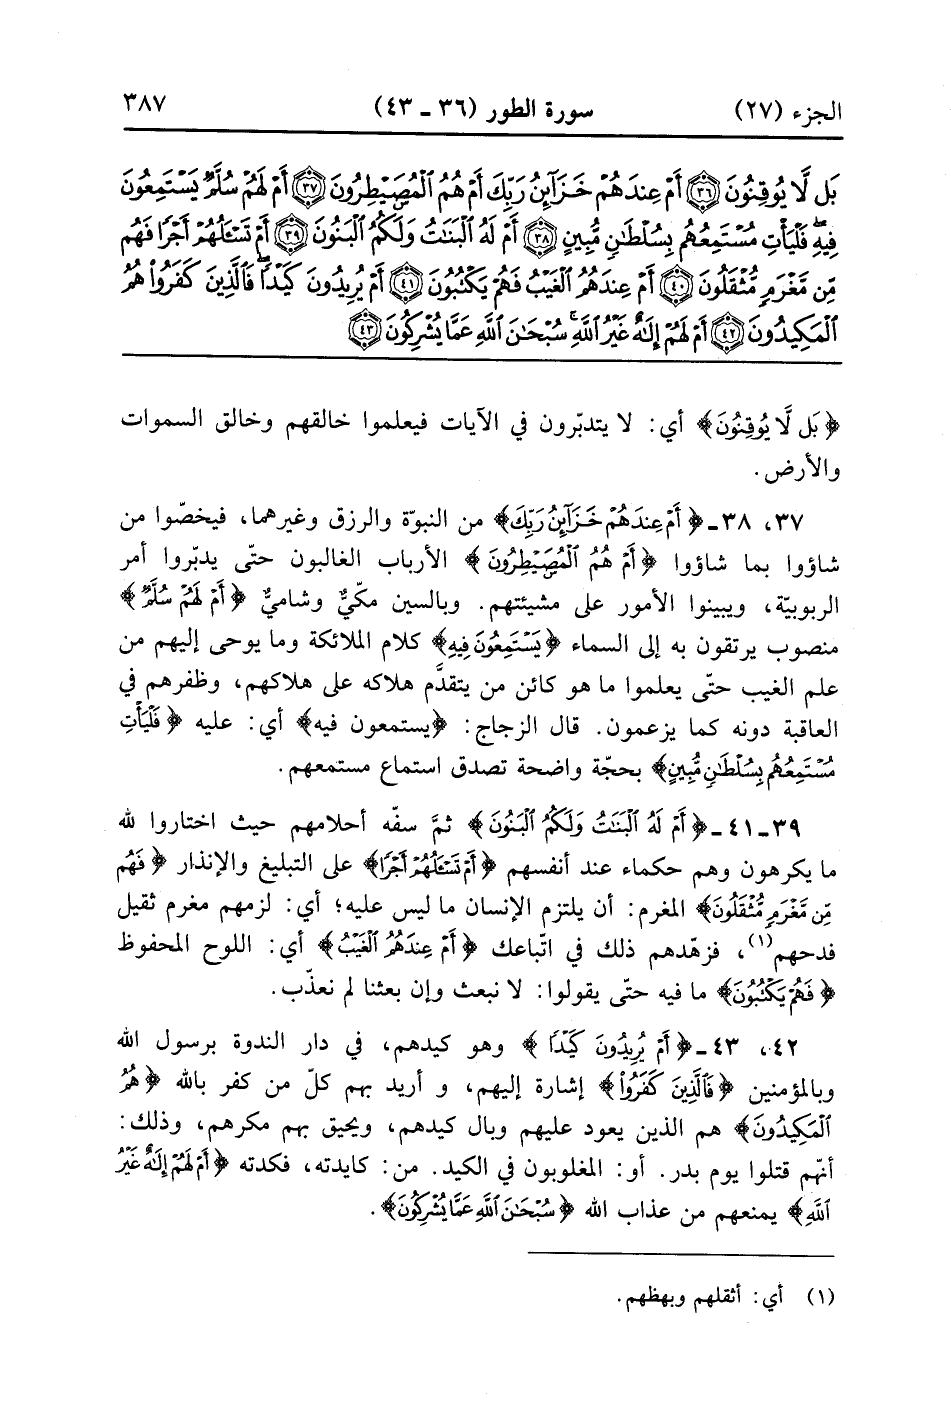 الجزء (٢٧) سورة الطور (٣٦ ـ ٤٣) ٣٨٧
بَل لَّا يُوقِنُونَ ٣٦ أَمْ عِندَهُمْ خَزَآئِنُ رَبِّكَ أَمْ هُمُ ٱلْمُصَۣيْطِرُونَ ٣٧ أَمْ لَهُمْ سُلَّمٌ يَسْتَمِعُونَ
فِيهِ ۖ فَلْيَأْتِ مُسْتَمِعُهُم بِسُلْطَٰنٍ مُّبِينٍ ٣٨ أَمْ لَهُ ٱلْبَنَٰتُ وَلَكُمُ ٱلْبَنُونَ ٣٩ أَمْ تَسْـَٔلُهُمْ أَجْرًا فَهُم
مِّن مَّغْرَمٍ مُّثْقَلُونَ ٤٠ أَمْ عِندَهُمُ ٱلْغَيْبُ فَهُمْ يَكْتُبُونَ ٤١ أَمْ يُرِيدُونَ كَيْدًا ۖ فَٱلَّذِينَ كَفَرُوا۟ هُمُ
ٱلْمَكِيدُونَ ٤٢ أَمْ لَهُمْ إِلَٰهٌ غَيْرُ ٱللَّهِ ۚ سُبْحَٰنَ ٱللَّهِ عَمَّا يُشْرِكُونَ ٤٣
﴿بَل لَّا يُوقِنُونَ﴾ أي: لا يتدبّرون في الآيات فيعلموا خالقهم وخالق السموات
والأرض.
٣٧، ٣٨ـ ﴿أَمْ عِندَهُمْ خَزَآئِنُ رَبِّكَ﴾ من النبوّة والرزق وغيرهما، فيخصّوا من
شاؤوا بما شاؤوا ﴿أَمْ هُمُ ٱلْمُصَۣيْطِرُونَ﴾ الأرباب الغالبون حتّى يدبّروا أمر
الربوبيّة، ويبينوا الأمور على مشيئتهم. وبالسين مكّيٌّ وشاميٌّ ﴿أَمْ لَهُمْ سُلَّمٌ﴾
منصوب يرتقون به إلى السماء ﴿يَسْتَمِعُونَ فِيهِ﴾ كلام الملائكة وما يوحى إليهم من
علم الغيب حتّى يعلموا ما هو كائن من يتقدَّم هلاكه على هلاكهم، وظفرهم في
العاقبة دونه كما يزعمون. قال الزجاج: ﴿يستمعون فيه﴾ أي: عليه ﴿فَلْيَأْتِ
مُسْتَمِعُهُم بِسُلْطَٰنٍ مُّبِينٍ﴾ بحجّة واضحة تصدق استماع مستمعهم.
٣٩ـ٤١ـ ﴿أَمْ لَهُ ٱلْبَنَٰتُ وَلَكُمُ ٱلْبَنُونَ﴾ ثمَّ سفّه أحلامهم حيث اختاروا لله
ما يكرهون وهم حكماء عند أنفسهم ﴿أَمْ تَسْـَٔلُهُمْ أَجْرًا﴾ على التبليغ والإنذار ﴿فَهُم
مِّن مَّغْرَمٍ مُّثْقَلُونَ﴾ المغرم: أن يلتزم الإنسان ما ليس عليه؛ أي: لزمهم مغرم ثقيل
فدحهم(١)، فزهّدهم ذلك في اتّباعك ﴿أَمْ عِندَهُمُ ٱلْغَيْبُ﴾ أي: اللوح المحفوظ
﴿فَهُمْ يَكْتُبُونَ﴾ ما فيه حتّى يقولوا: لا نبعث وإن بعثنا لم نعذّب.
٤٢، ٤٣ـ ﴿أَمْ يُرِيدُونَ كَيْدًا﴾ وهو كيدهم، في دار الندوة برسول الله
وبالمؤمنين ﴿فَٱلَّذِينَ كَفَرُوا۟﴾ إشارة إليهم، و أريد بهم كلّ من كفر بالله ﴿هُمُ
ٱلْمَكِيدُونَ﴾ هم الذين يعود عليهم وبال كيدهم، ويحيق بهم مكرهم، وذلك:
أنّهم قتلوا يوم بدر. أو: المغلوبون في الكيد. من: كايدته، فكدته ﴿أَمْ لَهُمْ إِلَٰهٌ غَيْرُ
ٱللَّهِ﴾ يمنعهم من عذاب الله ﴿سُبْحَٰنَ ٱللَّهِ عَمَّا يُشْرِكُونَ﴾.
(١) أي: أثقلهم وبهظهم.